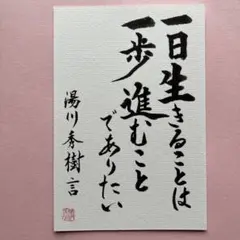 一日生きることは
一歩進むこと
でありたい
湯川秀樹言